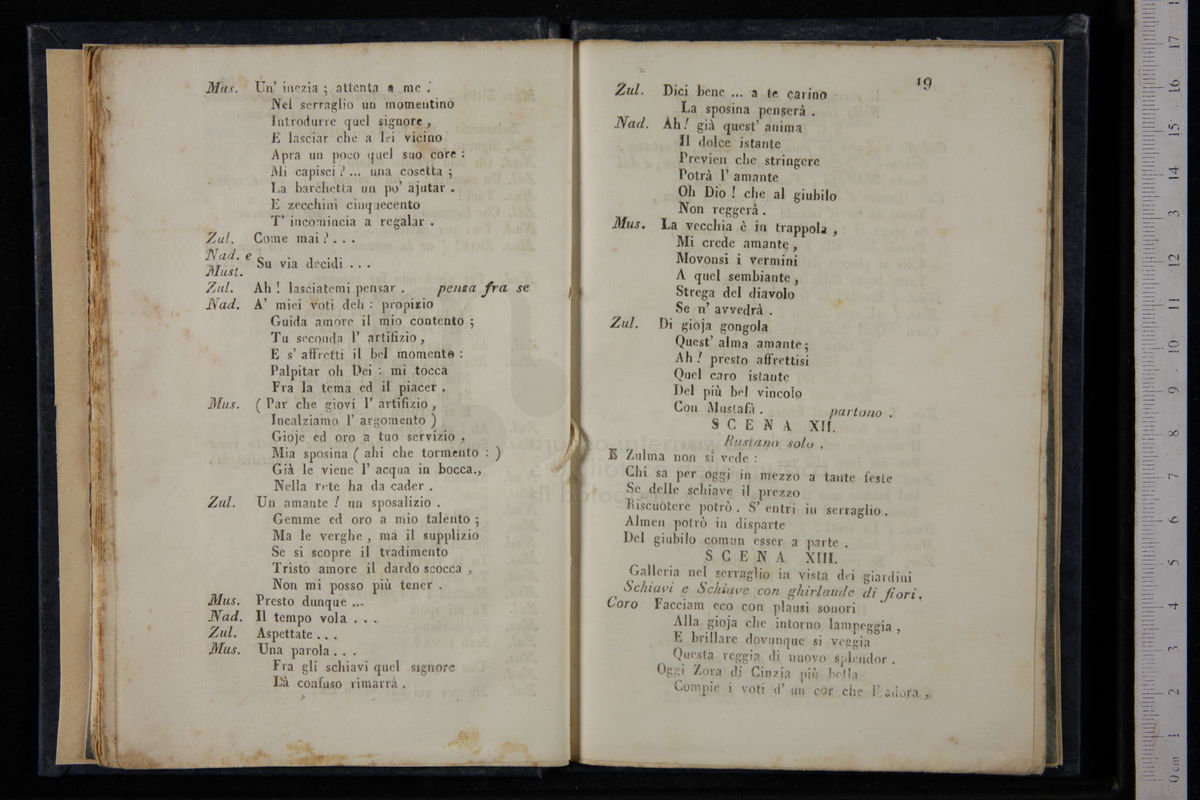 Mus. Un' inezia ; attenta a me :
Nel serraglio un momentino
Introdurre quel signore ,
E lasciar che a lei vicino
Apra un poco quel suo core :
Mi capisci ? ... una cosetta ;
La barchetta un po' ajutar .
E zecchini cinquecento
T' incomincia a regalar .
Zul. Come mai ? . . .
Nad. e
Must. Su via decidi . . .
Zul. Ah ! lasciatemi pensar . pensa fra se
Nad. A' miei voti deh : propizio
Guida amore il mio contento ;
Tu seconda l' artifizio ,
E s' affretti il bel momento :
Palpitar oh Dei : mi tocca
Fra la tema ed il piacer .
Mus. ( Par che giovi l' artifizio ,
Incalziamo l' argomento )
Gioje ed oro a tuo servizio ,
Mia sposina ( ahi che tormento : )
Già le viene l' acqua in bocca.,
Nella rete ha da cader .
Zul. Un amante ! un sposalizio .
Gemme ed oro a mio talento ;
Ma le verghe , ma il supplizio
Se si scopre il tradimento
Tristo amore il dardo scocca ,
Non mi posso più tener .
Mus. Presto dunque ...
Nad. Il tempo vola . . .
Zul. Aspettate . . .
Mus. Una parola . . .
Fra gli schiavi quel signore
Là confuso rimarrà .
19
Zul. Dici bene ... a te carino
La sposina penserà .
Nad. Ah ! già quest' anima
Il dolce istante
Previen che stringere
Potrà l' amante
Oh Dio ! che al giubilo
Non reggerà .
Mus. La vecchia è in trappola ,
Mi crede amante ,
Movonsi i vermini
A quel sembiante ,
Strega del diavolo
Se n' avvedrà .
Zul. Di gioja gongola
Quest' alma amante ;
Ah ! presto affrettisi
Quel caro istante
Del più bel vincolo
Con Mustafà . partono .
SCENA XII.
Rustano solo .
E Zulma non si vede :
Chi sa per oggi in mezzo a tante feste
Se delle schiave il prezzo
Riscuotere potrò . S' entri in serraglio .
Almen potrò in disparte
Del giubilo comun esser a parte .
SCENA XIII.
Galleria nel serraglio in vista dei giardini
Schiavi e Schiave con ghirlande di fiori,
Coro Facciam eco con plausi sonori
Alla gioja che intorno lampeggia ,
E brillare dovunque si veggia
Questa reggia di nuovo splendor .
Oggi Zora di Cinzia più bella
Compie i voti d' un cor che l' adora ,